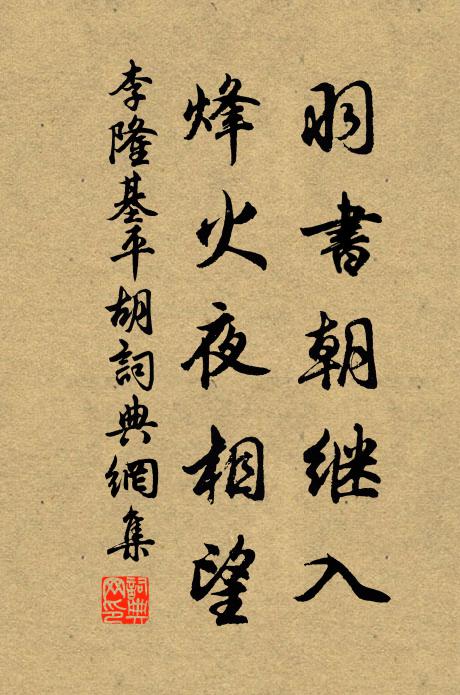 羽書朝继入
烽火夜相望
李隆基平胡詞典網集
詞典網印